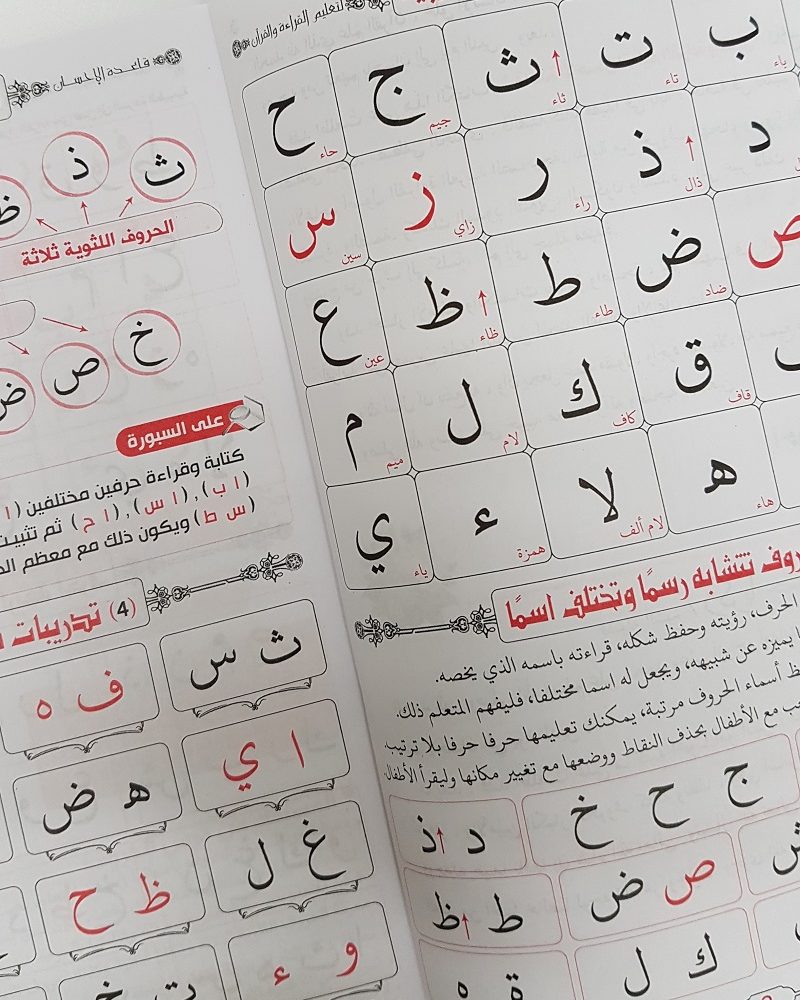 لتعليم القراءة والقرآن
ب ت ث ج ح
باء تاء ثاء جيم حاء
د ذ ر ز س
ذال راء زاي سين
ص ض ط ظ ع
ضاد طاء ظاء عين
ق ك ل م
قاف كاف لام ميم
ه لا ء ي
هاء لام ألف همزة ياء
تتشابه رسمًا وتختلف اسمًا
الحرف، رؤيته وحفظ شكله، قراءته باسمه الذي يخصه.
يميزه عن شبيهه، ويجعل له اسما مختلفا، فليفهم المتعلم ذلك.
أسماء الحروف مرتبة، يمكنك تعليمها حرفا حرفا بلا ترتيب
مع الأطفال بحذف النقاط ووضعها مع تغيير مكانها وليقرأ الأطفال
ج ح خ
د ذ
ص ض
ط ظ
ك ل
قاعدة الإحسان
ث ذ ظ
الحروف اللثوية ثلاثة
خ ص ض
على السبورة
كتابة وقراءة حرفين مختلفين (ا
(ا ب)، (ا س)، (ا ح) ثم
(س ط) ويكون ذلك مع معظم
(4) تدريبات
ث س
ف ه
ا ي
ه ض
غ ل
ظ ح
و ء
ت خ